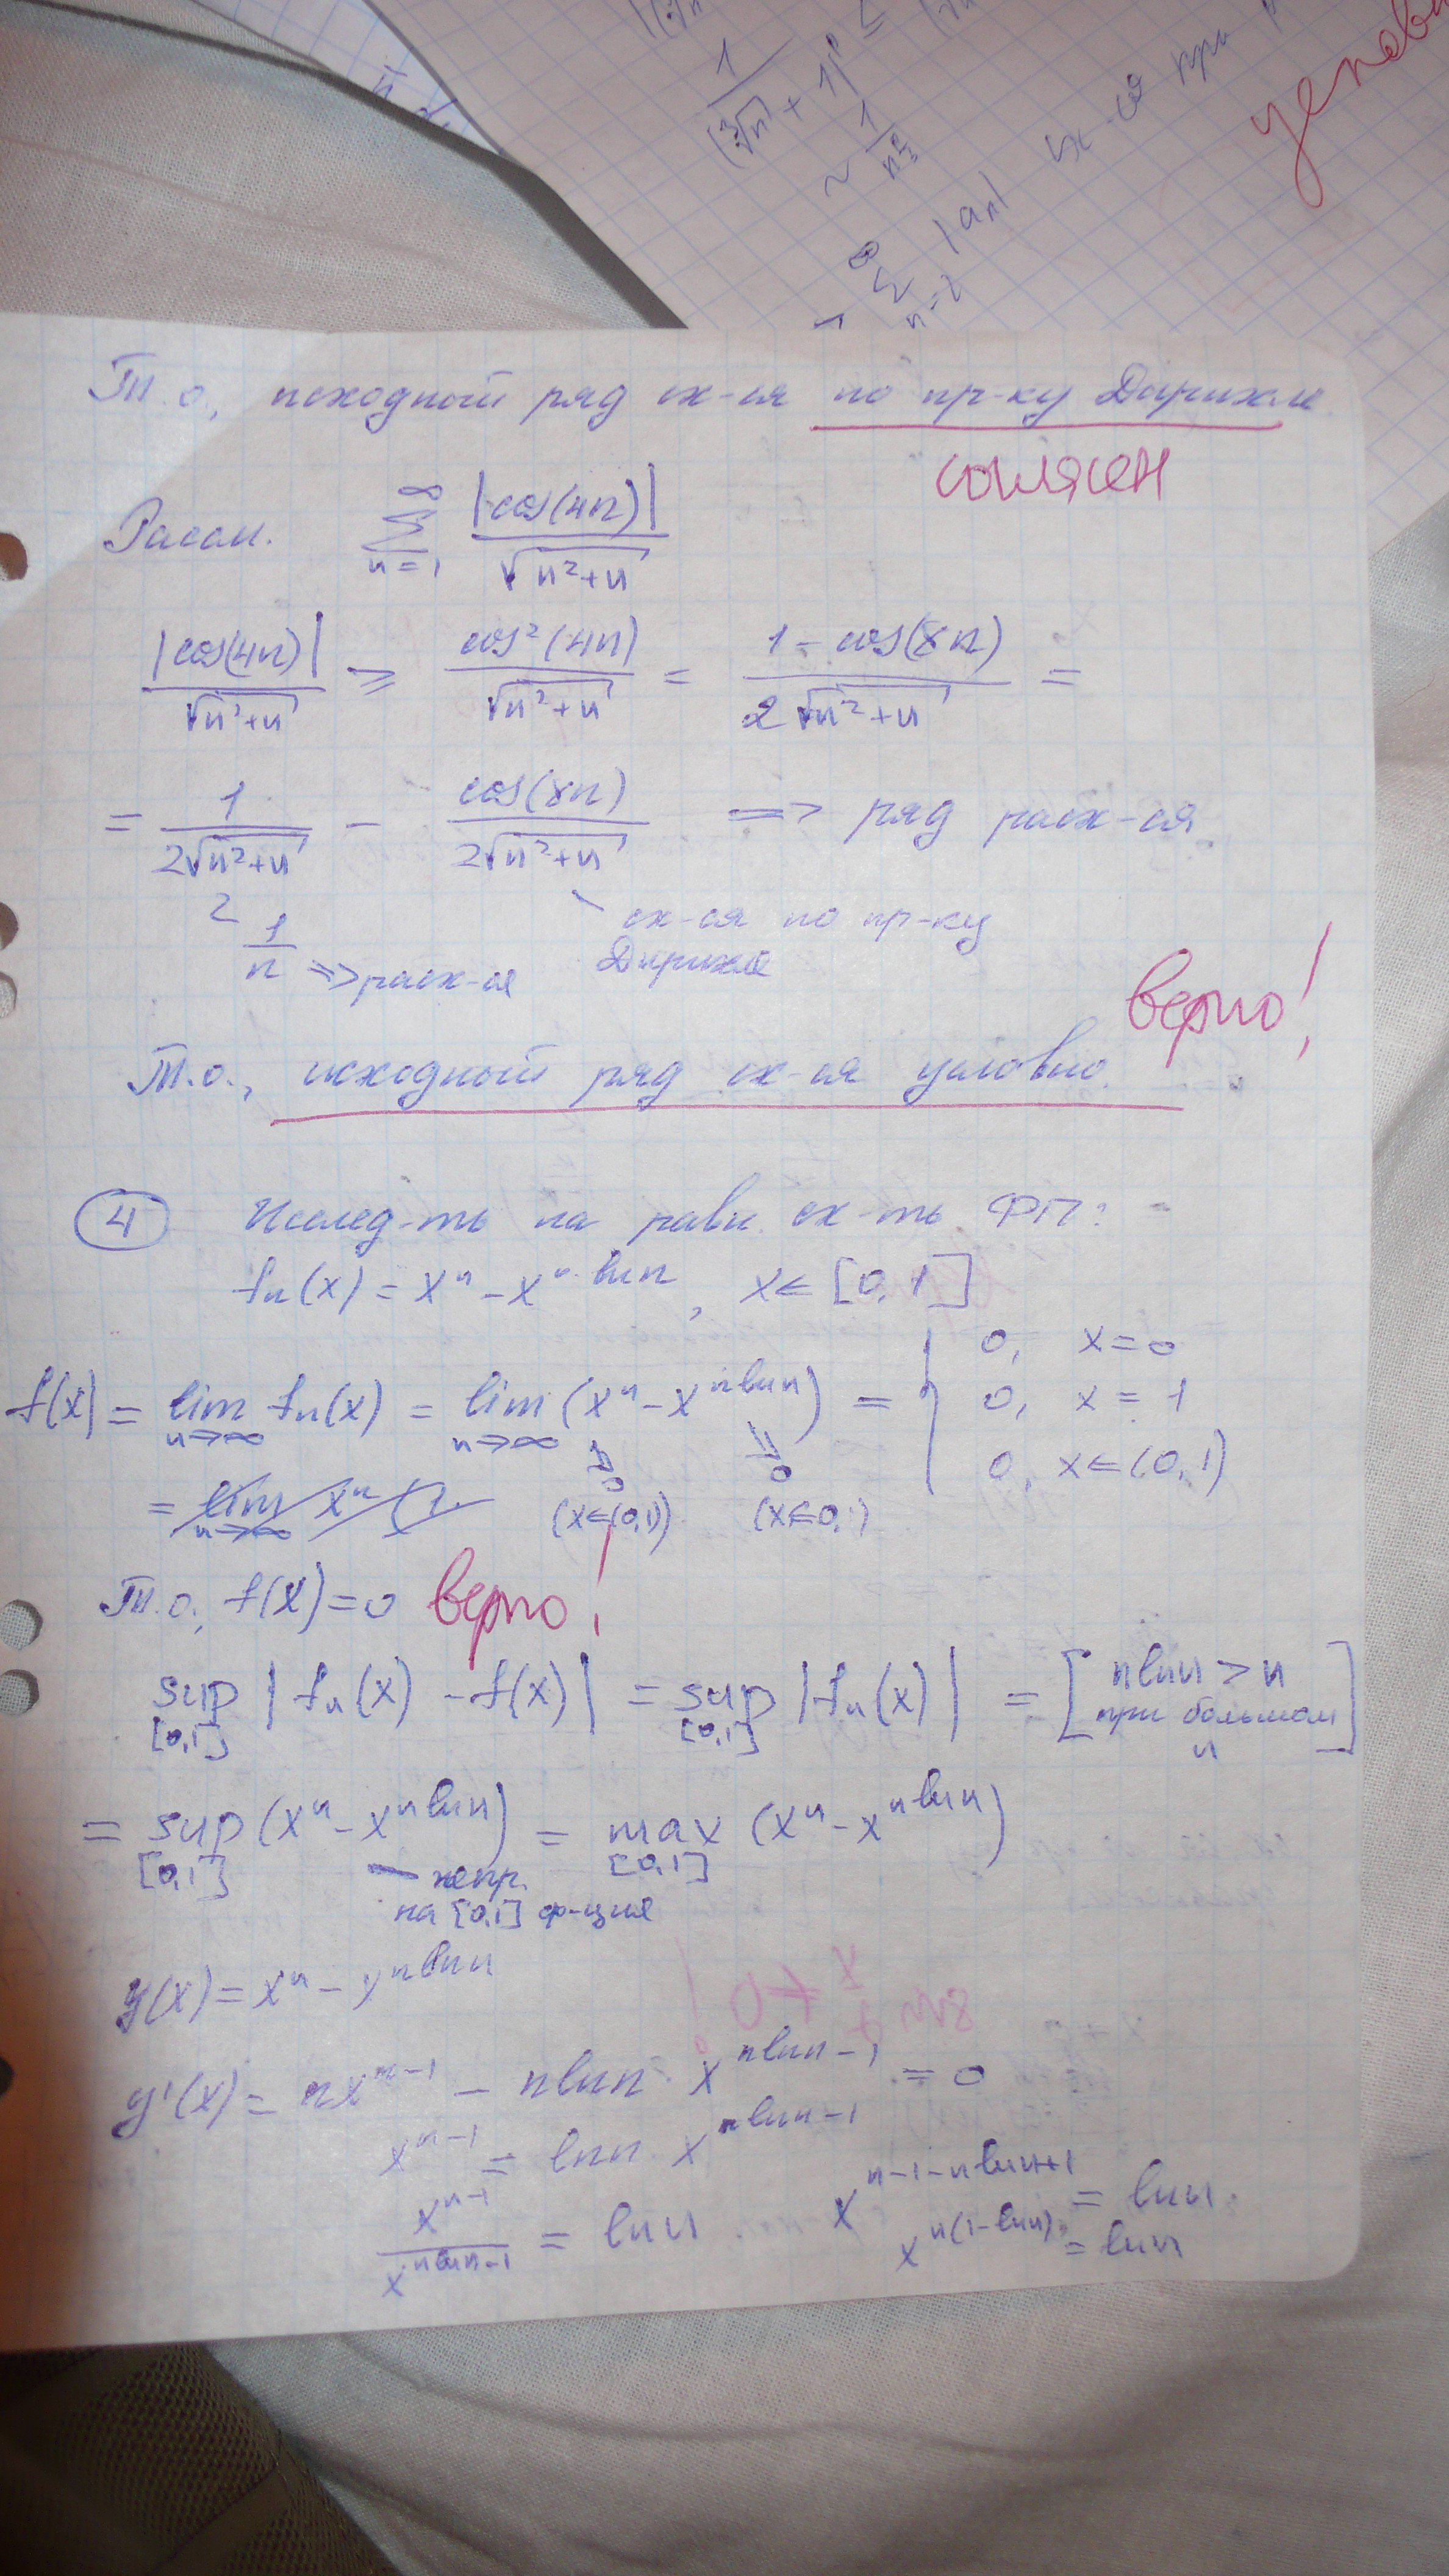 1/(∛n + 1)^p ≤
~ 1/n^(p/3)
∑_{n=2}^∞ |a_n| сх-ся при
Т.о., исходный ряд сх-ся по пр-ку Дирихле
согласен
Рассм. ∑_{n=1}^∞ |cos(4n)|/√(n²+n)
|cos(4n)|/√(n²+n) ≥ cos²(4n)/√(n²+n) = (1 - cos(8n))/(2√(n²+n)) =
= 1/(2√(n²+n)) - cos(8n)/(2√(n²+n)) => ряд расх-ся
~ 1/n => расх-ся
сх-ся по пр-ку
Дирихле
верно!
Т.о., исходный ряд сх-ся условно.
4 Исслед-ть на равн. сх-ть ФП:
fn(x) = x^n - x^(n ln n), x ∈ [0,1]
f(x) = lim_{n→∞} fn(x) = lim_{n→∞} (x^n - x^(n ln n)) = { 0, x=0
0, x=1
0, x∈(0,1)
0 (x∈(0,1)) 0 (x∈0,1)
Т.о., f(x)=0 верно!
sup_[0,1] |fn(x) - f(x)| = sup_[0,1] |fn(x)| = [n ln n > n при большом n]
= sup_[0,1] (x^n - x^(n ln n)) = max_[0,1] (x^n - x^(n ln n))
- непр.
на [0,1] ф-ция
y(x) = x^n - x^(n ln n)
y'(x) = nx^(n-1) - n ln n · x^(n ln n - 1) = 0
x^(n-1) = ln n x^(n ln n - 1)
x^(n-1)/x^(n ln n - 1) = ln n
x^(n-1-n ln n+1) = ln n
x^(n(1-ln n)) = ln n